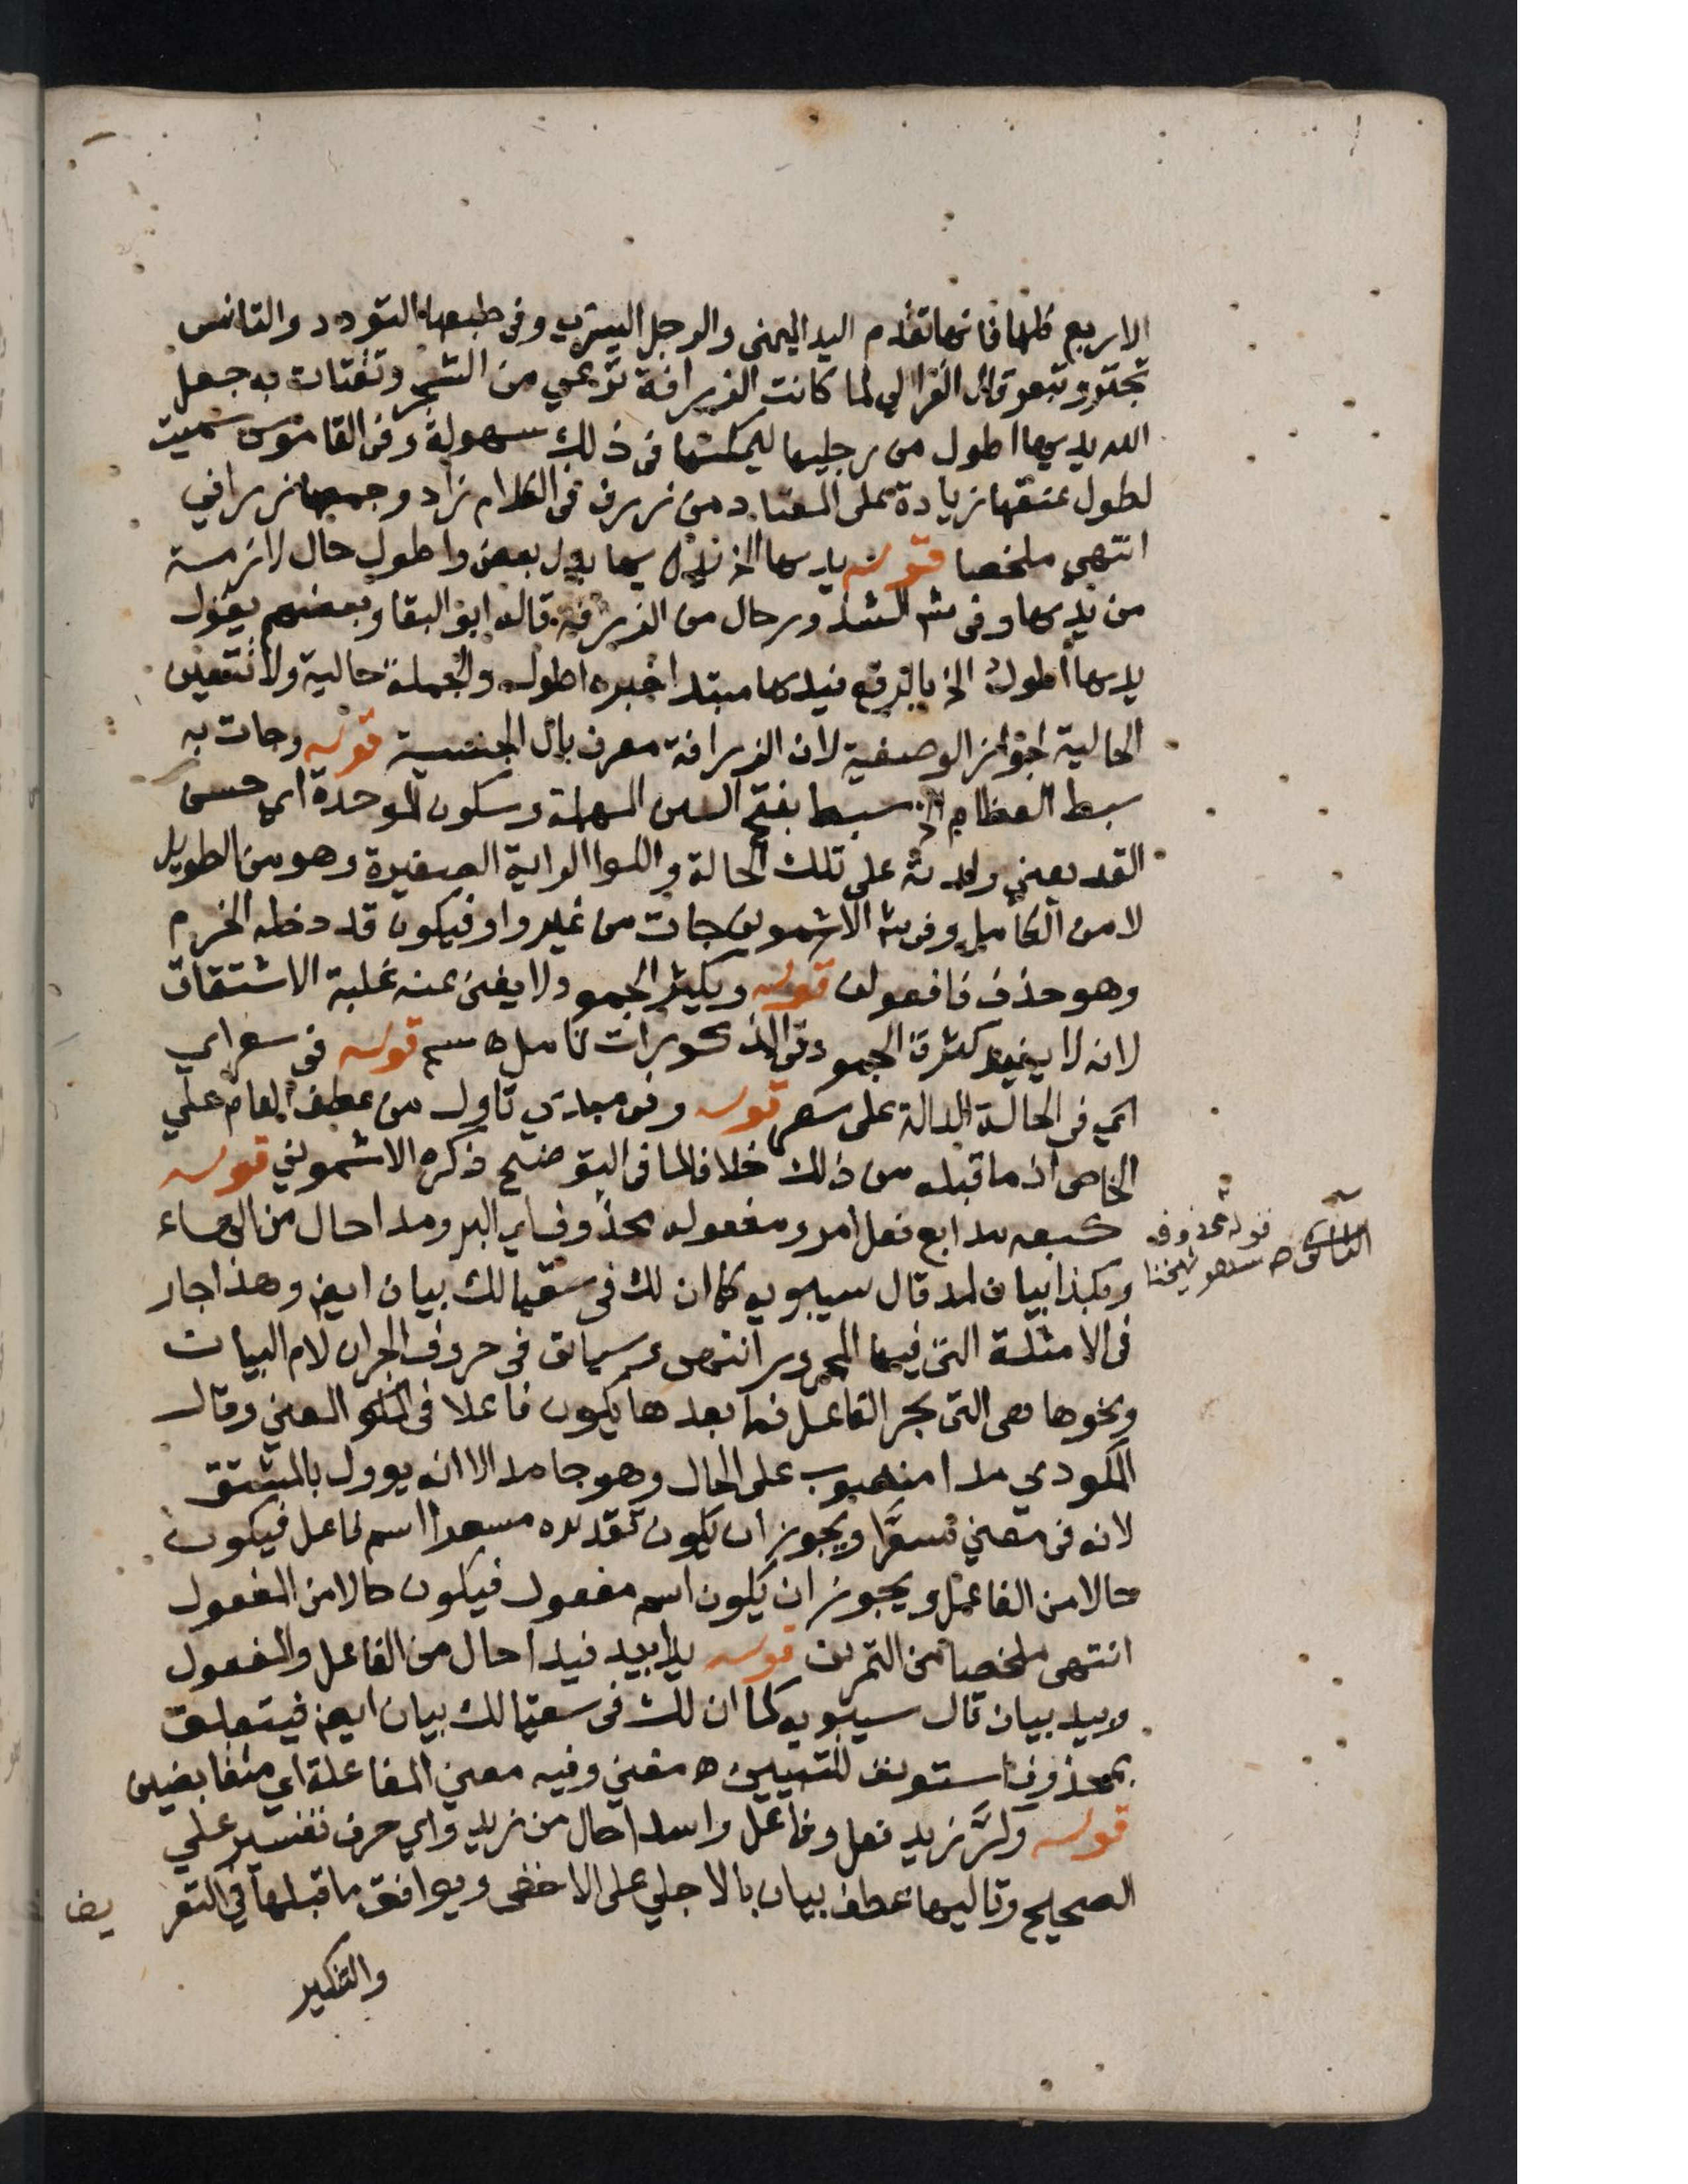 الاربع كلها فانها تقدم اليد اليمنى والرجل اليسرى وفى طبعها التودد والتانس
تجتر وتبعر قال الغزالي لما كانت الزرافة ترعي من الشجر وتقتات به جعل
الله يديها اطول من رجليها ليمكنها فى ذلك سهولة وفى القاموس سميت
لطول عنقها زيادة على المعتاد من زرف فى الكلام زاد وجمعها زرافي
انتهى ملخصا قوله يديها الخ يديها بدل بعض واطول حال لازمة
من يديها وفى ش الشذور حال من الزرافة قاله ابو البقا وبعضهم يقول
يدىها اطول الخ بالرفع فيدىها مبتدا خبره اطول والجملة حالية ولا تتعين
الحالية لجواز الوصفية لان الزرافة معرف بال الجنسية قوله وجات به
سبط العظام الخ سبط بفتح السين المهملة وسكون الموحدة اي حسن
القد يعني ولدته على تلك الحالة واللوا الراية الصغيرة وهو من الطويل
لا من الكامل وفى ش الاشموني جات من غير واو فيكون قد دخله الخرم
وهو حذف فا فعولن قوله ويكثر الجمود ولا يغنى عنه غلبة الاشتقاق
لانه لا يفيد كثرة الجمود فى المذكورات تامل ه سم قوله فى سعر اي
اي فى الحالة الدالة على سعر قوله وفى مبدى تاول من عطف العام علي
الخاص اذ ما قبله من ذلك خلافا لما فى التوضيح ذكره الاشموني قوله
كبعه مدا بع فعل امر ومفعوله محذوف اي البر ومدا حال من الهاء
وبكذا بيان له قال سيبويه كما ان لك فى سقيا لك بيان ايضا وهذا جار
فى الامثلة التى فيها المجرور انتهى وسياتى فى حروف الجر ان لام البيان
ونحوها هى التى تجر الفاعل فما بعدها يكون فاعلا فى المعنى وقال
المكودي مدا منصوب على الحال وهو جامد الا انه يوول بالمشتق
لانه فى معني مسعرا ويجوز ان يكون تقديره مسعرا اسم فاعل فيكون
حالا من الفاعل ويجوز ان يكون اسم مفعول فيكون حالا من المفعول
انتهى ملخصا من التمرين قوله يدا بيد فيدا حال من الفاعل والمفعول
وبيد بيان قال سيبويه كما ان لك فى سقيا لك بيان ايضا فيتعلق
بمحذوف استونف للتبيين ه مغني وفيه معني المفاعلة اي متقابضين
قوله وكر زيد فعل وفاعل واسدا حال من زيد واي حرف تفسير علي
الصحيح وتاليها عطف بيان بالاجلي على الاخفى ويوافق ما قبلها في التعريف
والتنكير
قوله محذوف
شيخنا